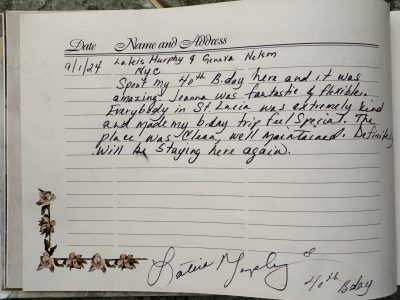 Date Name and Address
9/1/24 Lateis Murphy & Geneva Nelson
NYC
Spent my 40th B.day here and it was
amazing. Jeanna was fantastic & flexible.
Everybody in St Lucia was extremely kind
and made my bday trip feel special. The
place was clean, well maintained. Definitely
will be staying here again.
Murphy
40th Bday